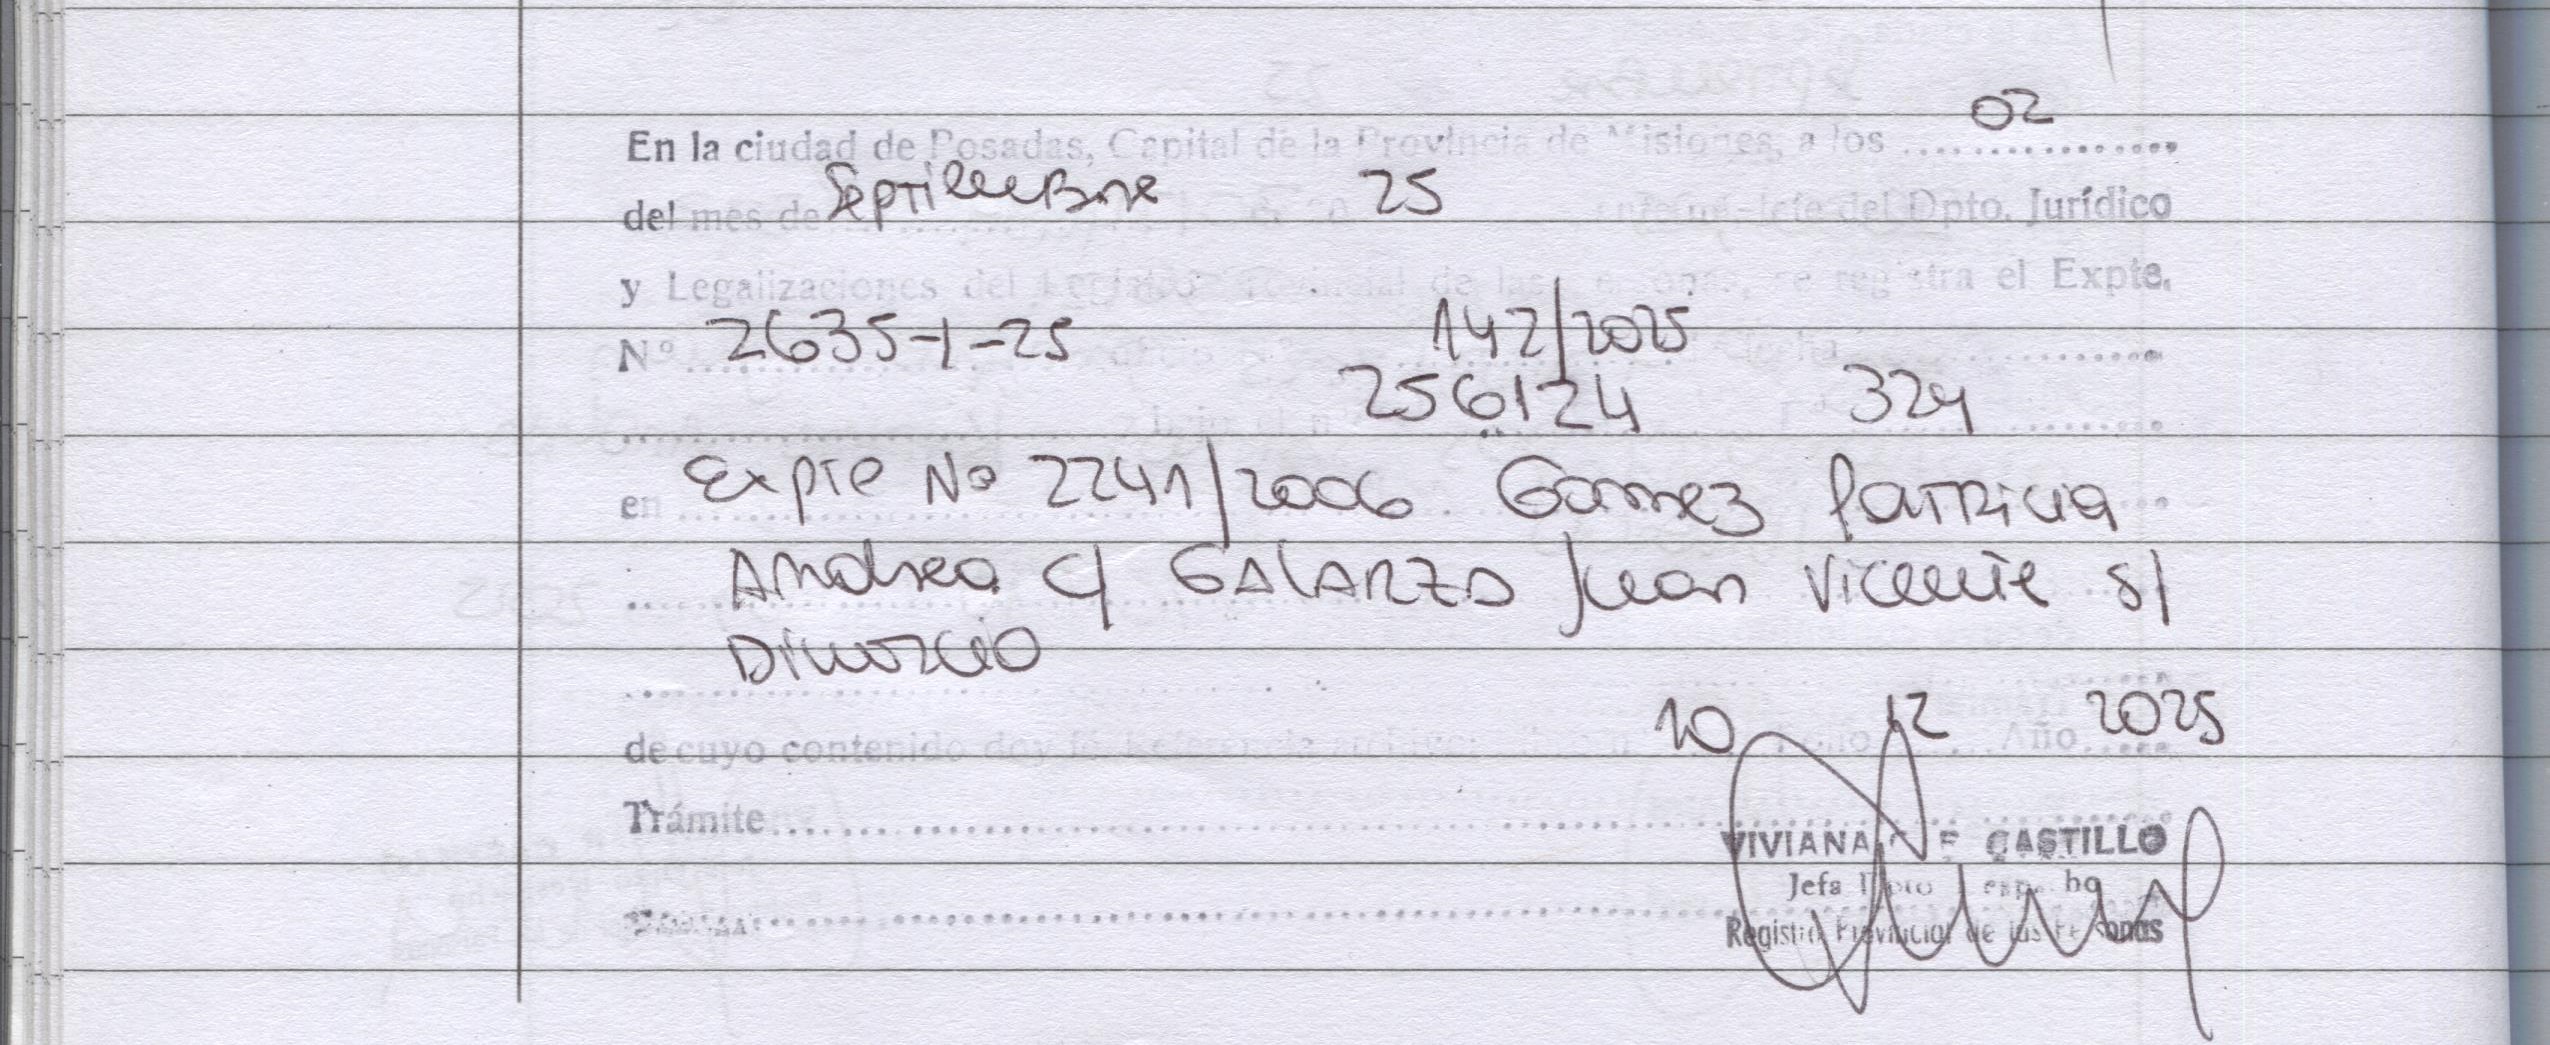 02
En la ciudad de Posadas, Capital de la Provincia de Misiones, a los
del mes de Septiembre 25 Jefe del Dpto. Jurídico
y Legalizaciones del Registro Provincial de las registra el Expte.
Nº 2635-1-25 142/2025
256124 324
en Expte No 2241/2006 Gomez Patricia
Andrea c/ GALARZA Juan Vicente s/
Divorcio
10 12 2025
de cuyo contenido doy fé. Año
Trámite
VIVIANA CASTILLO
Jefa Dpto
Registro Provincial de las Personas